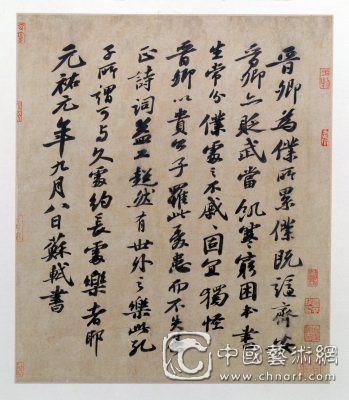 晉卿為僕所累僕既謫齊安
晉卿亦貶武當飢寒窮困本書
生常分僕處之不戚〻固宜獨怪
晉卿以貴公子罹此憂患而不失其
正詩詞益工超然有世外之樂此孔
子所謂可与久處約長處樂者耶
元祐元年九月八日蘇軾書
中國藝術網
www.chnart.com